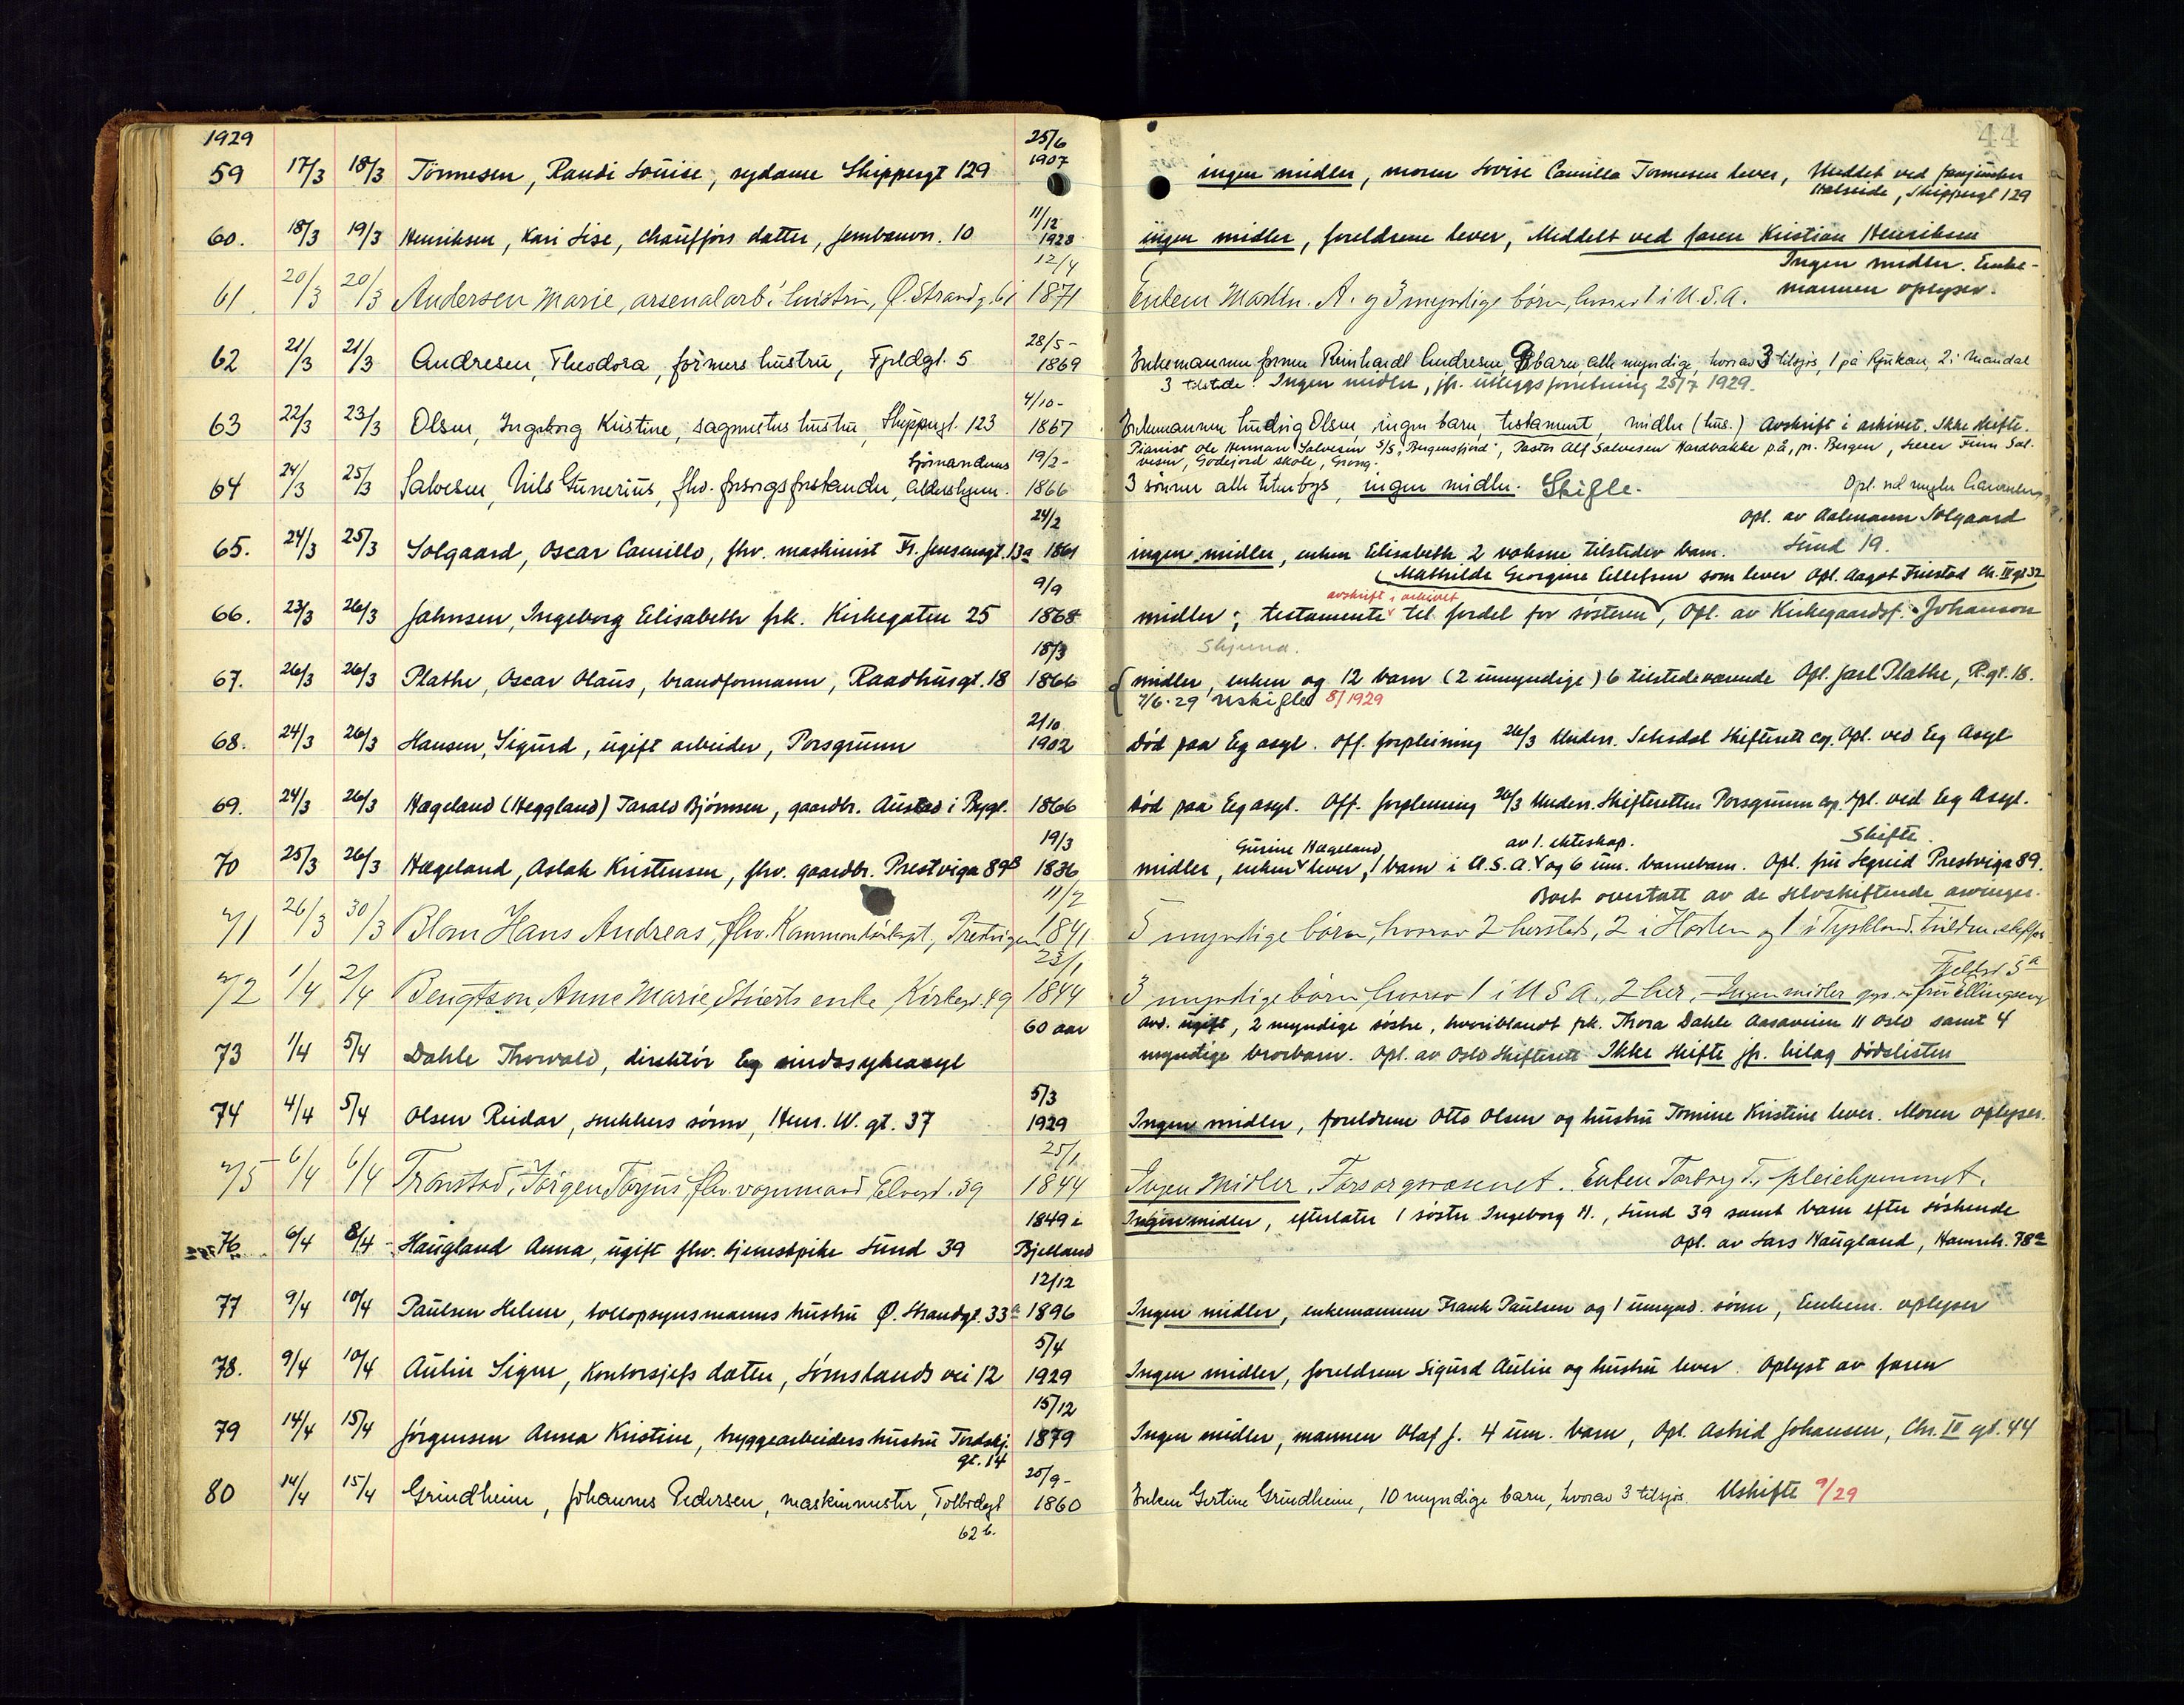 1929
44
59 17/3 18/3 Tönnesen, Randi Louise, sydame Skippergt 129 25/6 1907 ingen midler, moren Lovise Camilla Tönnesen lever, Meddelt ved
Skippergt 129
60. 18/3 19/3 Henriksen, Kari Lise, chaufförs datter, Jernbanvn. 10 11/12 1928 ingen midler, foreldrene lever, Meddelt ved faren Kristian Henriksen
Ingen midler. Enke-
61. 20/3 20/3 Andersen Marie, arsenalarb. hustru, Ø. Strandg. 61 12/4 1871 Enkem Martin. A. og 3 myndige börn, hvorav 1 i U.S.A. mannen oplyser.
62 21/3 21/3 Andresen, Theodora, förmers hustru, Fjeldgt. 5 28/5- 1869 Enkemannen former Reinhardt Andresen, 9 barn, alle myndige, hvorav 3 tilsjös, 1 på Rjukan, 2 i Mandal
3 tilstede. Ingen midler, jfr. utleggsforretning 25/7 1929.
63 22/3 23/3 Olsen, Ingeborg Kristine, sagmesters hustru, Skippergt. 123 4/10- 1867 Enkemannen Ludvig Olsen, ingen barn, testament, midler (hus.) Avskrift i arkivet. Ikke skifte.
Pianist Ole Herman Salvesen S/S "Bergensfjord", Pastor Alf Salvesen Hardbakke p.å., pr. Bergen, Lærer Finn Sal-
vesen, Godejord skole, Grong.
64 24/3 25/3 Salvesen, Nils Gunerius, fhv. forsorgsforstander, Sjömandens Aldershjem. 19/2- 1866 3 sönner alle utenbys, ingen midler. Skifte. Opl. ved megler
Opl. av Solgaard
65. 24/3 25/3 Solgaard, Oscar Camillo, fhv. maskinist Fr. Jensensgt. 13a 24/2 1861 ingen midler, enken Elisabeth 2 voksne tilstedev barn. Lund 19.
(Mathilde Georgine Ellefsen som lever Opl. Aagot Friestad Chr. IV gt 32
66. 23/3 26/3 Jahnsen, Ingeborg Elisabeth frk. Kirkegaten 25 9/9 1868 midler; testamente avskrift i arkivet til fordel for sösteren, Opl. av Kirkegaardsf. Johanson
Skjema.
67. 26/3 26/3 Plathe, Oscar Olaus, brandformann, Raadhusgt. 18 18/3 1866 midler, enken og 12 barn (2 umyndige) 6 tilstedeværende Opl. Jarl Plathe, R.gt. 18.
7/6-29 uskifte 8/1929
68. 24/3 26/3 Hansen, Sigurd, ugift arbeider, Porsgrunn 2/10 1902 död paa Eg asyl. Off. forpleining 26/3 Underr. Skifterett Opl. ved Eg Asyl
69. 24/3 26/3 Hægeland (Heggland) Tarald Björnsen, gaardbr. Austad i Bygl. 1866 död paa Eg asyl. Off. forpleining 26/3 Underr. Skifteretten Porsgrunn opl. ved Eg Asyl.
70 25/3 26/3 Hægeland, Aslak Kristensen, fhv. gaardbr. Prestviga 89B 19/3 1836 midler, enken Gurine Hægeland lever, 1 barn i U.S.A. av 1. ekteskap. og 6 um. barnebarn. Opl. fru Segreid Prestviga 89. Skifte.
Boet overtatt av de selvskiftende arvinger.
71 26/3 30/3 Blom Hans Andreas, fhv. Kommandörkapt., Prestvigen 11/7 1841 5 myndige börn, hvorav 2 hersteds, 2 i Horten og 1 i Tyskland.
72 1/4 2/4 Bengtson, Anne Marie, Stuerts enke Kirkegt. 49 23/1 1844 3 myndige börn hvorav 1 i U S A., 2 her, - Ingen midler fru Ellingsen Fjeldgt 5a
avd. ugift, 2 myndige söstre, hvoriblandt frk. Thora Dahle Aasaveien 11 Oslo samt 4
73 1/4 5/4 Dahle Thorvald, direktör Eg sindssykeasyl 60 aar myndige brorbarn. Opl. av Oslo Skifterett Ikke skifte jfr. bilag dödslisten
74 4/4 5/4 Olsen Reidar, snekkers sönn, Henr. W. gt. 37 5/3 1929 Ingen midler, foreldrene Otto Olsen og hustru Tomine Kristine lever. Moren oplyser.
75 6/4 6/4 Tronstad, Jörgen Torjus, fhv. vognmand Elvegt. 39 25/1 1844 Ingen Midler. Forsorgsvæsenet. Enken Torborg T.,
76 6/4 8/4 Haugland Anna, ugift fhv. tjenestpike Lund 39 1849 i Bjelland Ingen midler, efterlater 1 söster Ingeborg H., Lund 39 samt barn efter söskende
Opl. av Lars Haugland, 38a
77 9/4 10/4 Paulsen Helene, tollopsynsmanns hustru Ø. Strandgt. 33a 12/12 1896 Ingen midler, enkemannen Frank Paulsen og 1 umynd. sönn, Enkem. oplyser
78. 9/4 10/4 Aulin Signe, Kontorsjefs datter, Tömstands vei 12 5/4 1929 Ingen midler, foreldrene Sigurd Aulin og hustru lever. Oplyst av faren
79 14/4 15/4 Jörgensen Anna Kristine, bryggearbeiders hustru Tordenskj. gt. 14 15/12 1879 Ingen midler, mannen Olaf J. 4 um. barn, Opl. Astrid Johansen, Chr. IV gt. 44
80 14/4 15/4 Grindheim, Johannes Pedersen, maskinmester, Tolbodgt 62 b. 25/9- 1860 Enken Gertine Grindheim, 10 myndige barn, hvorav 3 tilsjös. Uskifte 9/29